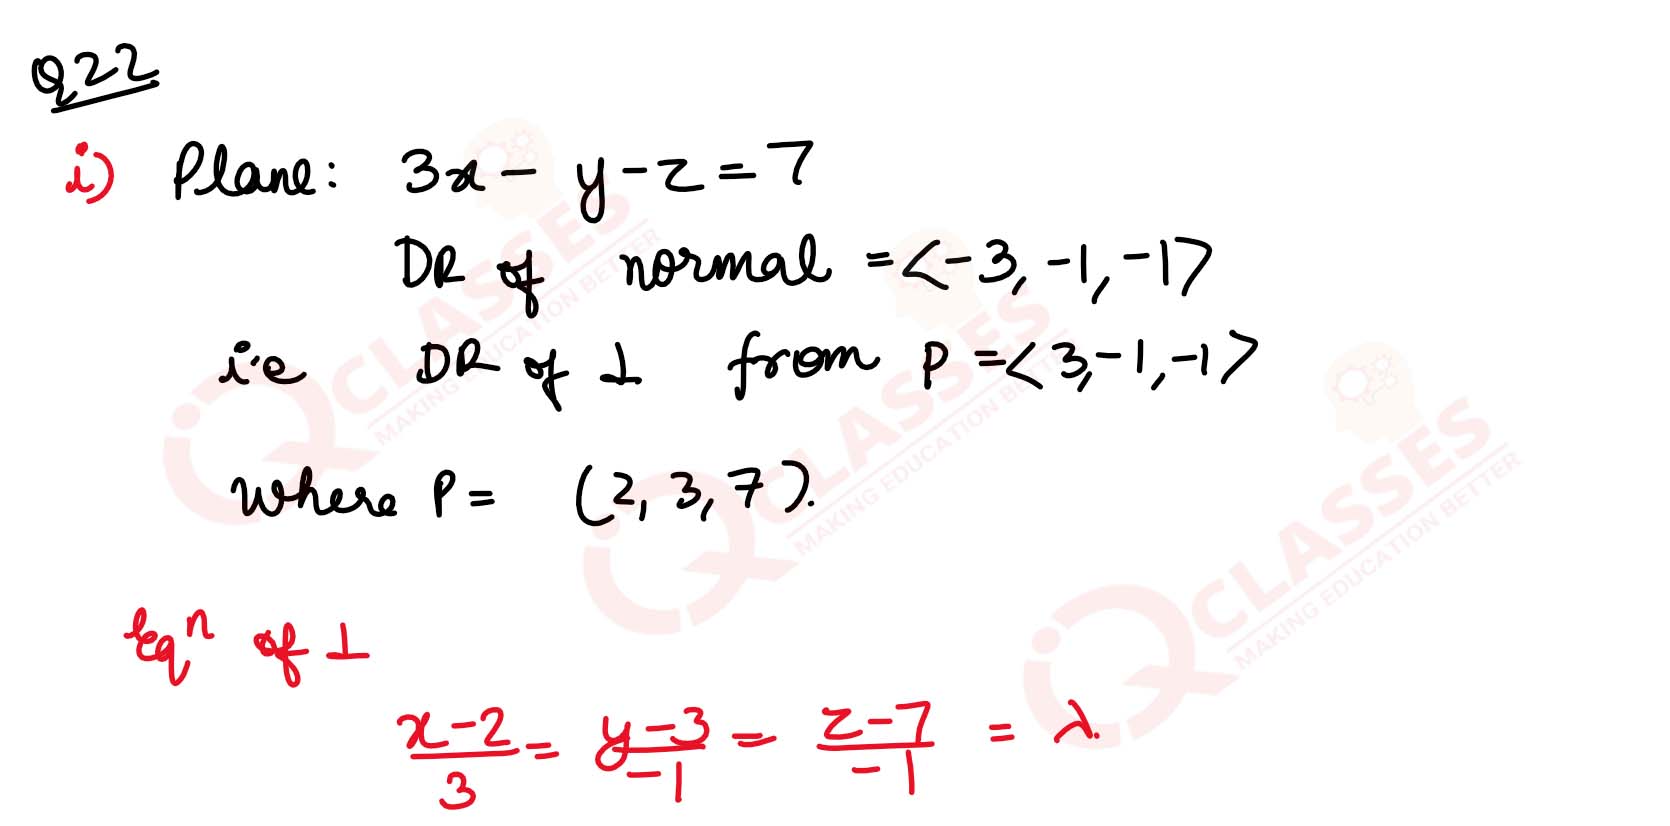 Q22
i) Plane: 3x - y - z = 7
DR of normal = <-3, -1, -1>
i.e DR of ⊥ from P = <3, -1, -1>
where P = (2, 3, 7).
Eqⁿ of ⊥
x-2/3 = y-3/-1 = z-7/-1 = λ.
iQ CLASSES
MAKING EDUCATION BETTER
iQ CLASSES
MAKING EDUCATION BETTER
iQ CLASSES
MAKING EDUCATION BETTER